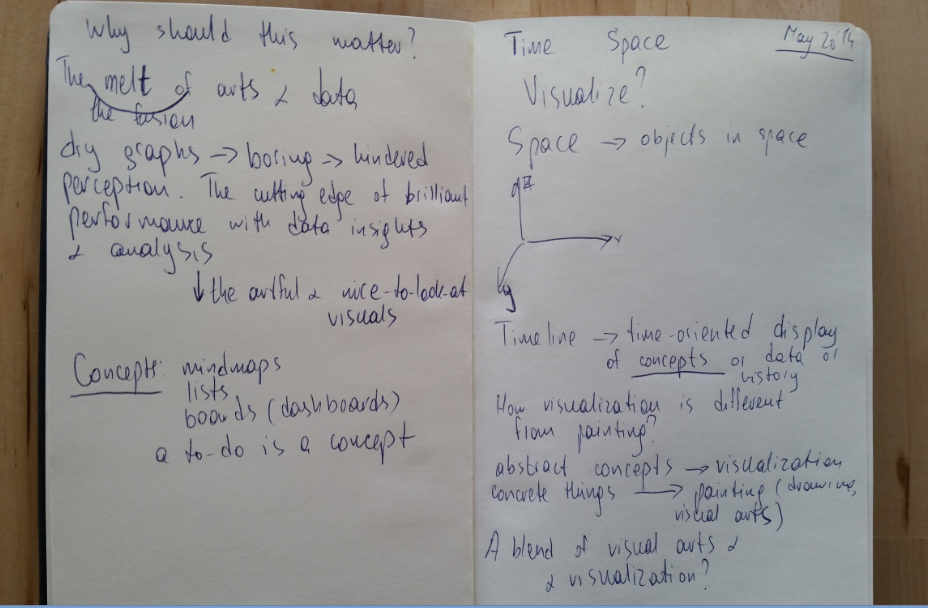 Why should this matter?
The melt of arts & data
the fusion
dry graphs → boring → hindered
perception. The cutting edge of brilliant
performance with data insights
& analysis
↓ the artful & nice-to-look-at
visuals
Concepts: mindmaps
lists
boards (dashboards)
a to-do is a concept
Time Space
May 2014
Visualize?
Space → objects in space
z
x
y
Timeline → time-oriented display
of concepts or data or
history
How visualization is different
from painting?
abstract concepts → visualization
concrete things → painting (drawing,
visual arts)
A blend of visual arts &
& visualization?